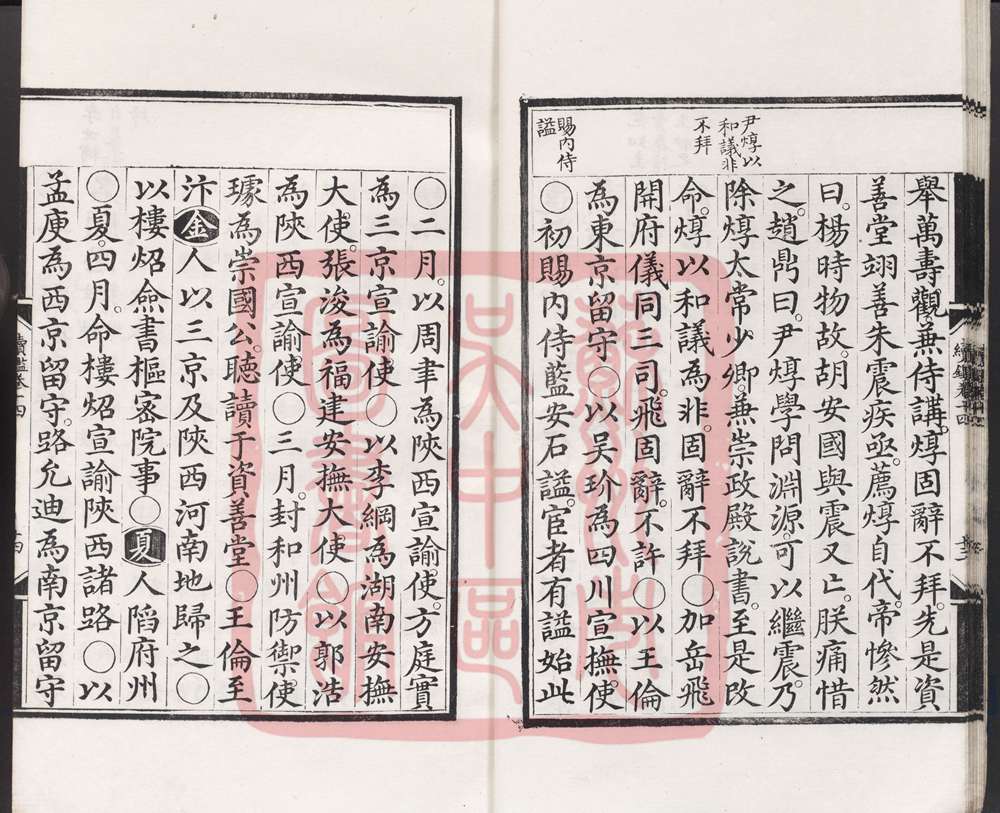 尹焞以
和議非
不拜
賜內侍
謚
舉萬壽觀。兼侍講。焞固辭不拜。先是資
善堂翊善朱震疾亟。薦焞自代。帝慘然
曰。楊時物故。胡安國與震又亡。朕痛惜
之。趙鼎曰。尹焞學問淵源。可以繼震。乃
除焞太常少卿。兼崇政殿說書。至是改
命。焞以和議為非。固辭不拜〇加岳飛
開府儀同三司。飛固辭。不許〇以王倫
為東京留守〇以吳玠為四川宣撫使
〇初賜內侍藍安石謚。宦者有謚始此
〇二月。以周聿為陝西宣諭使。方庭實
為三京宣諭使〇以李綱為湖南安撫
大使。張浚為福建安撫大使〇以郭浩
為陝西宣諭使〇三月。封和州防禦使
璩為崇國公。聽讀于資善堂〇王倫至
汴金人以三京及陝西河南地歸之〇
以樓炤僉書樞密院事〇夏人陷府州
〇夏。四月。命樓炤宣諭陝西諸路〇以
孟庾為西京留守。路允迪為南京留守